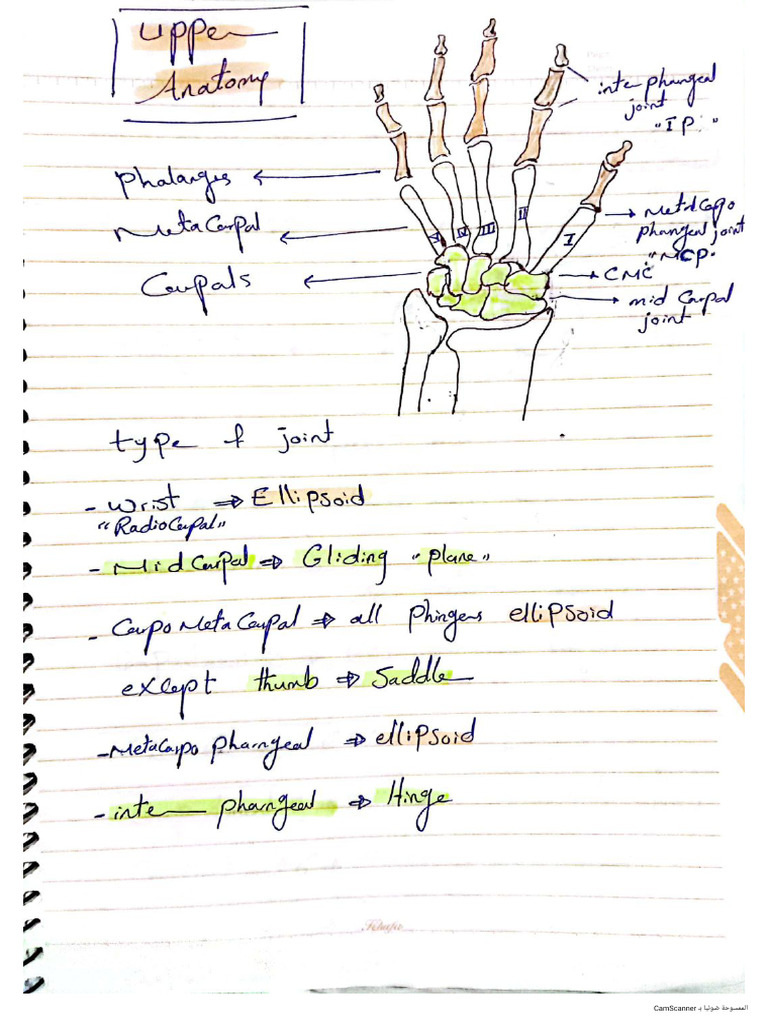 Upper
Anatomy
inter phangeal
joint
"IP."
Phalanges
MetaCarpal
Carpals
V IV III II I
MetaCarpo
phangeal joint
"MCP"
CMC
mid Carpal
joint
type of joint
- wrist ⇒ Ellipsoid
"RadioCarpal"
- MidCarpal ⇒ Gliding "plane"
- CarpoMetaCarpal ⇒ all phingers ellipsoid
except thumb ⇒ Saddle
- MetaCarpo pharngeal ⇒ ellipsoid
- inter pharngeal ⇒ Hinge
الممسوحة ضوئيا بـ CamScanner